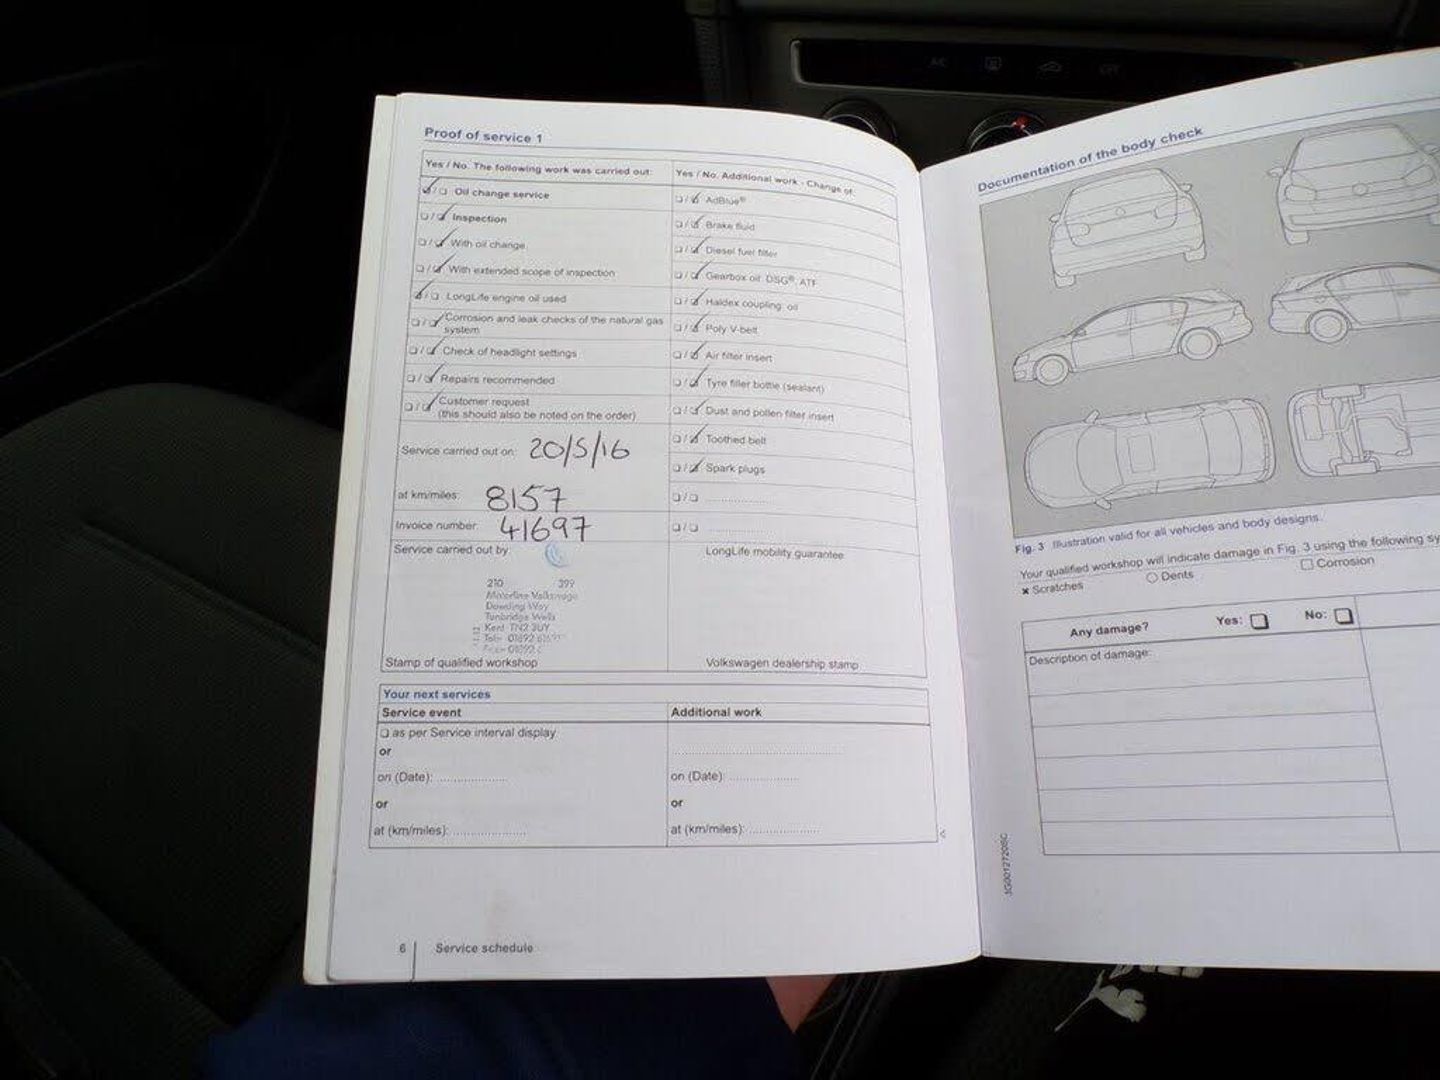 Proof of service 1
Yes / No. The following work was carried out:
Oil change service
Inspection
With oil change
With extended scope of inspection
LongLife engine oil used
Corrosion and leak checks of the natural gas
system
Check of headlight settings
Repairs recommended
Customer request
(this should also be noted on the order)
Service carried out on: 20/5/16
at km/miles: 8157
Invoice number: 41697
Service carried out by:
210 399
Motorline Volkswagen
Dowding Way
Tunbridge Wells
Kent TN2 3UY
Stamp of qualified workshop
Yes / No. Additional work - Change of:
AdBlue®
Brake fluid
Diesel fuel filter
Gearbox oil: DSG®, ATF
Haldex coupling: oil
Poly V-belt
Air filter insert
Tyre filler bottle (sealant)
Dust and pollen filter insert
Toothed belt
Spark plugs
LongLife mobility guarantee
Volkswagen dealership stamp
Your next services
Service event
as per Service interval display
or
on (Date):
or
at (km/miles):
Additional work
on (Date):
or
at (km/miles):
6 Service schedule
Documentation of the body check
Fig. 3 Illustration valid for all vehicles and body designs.
Your qualified workshop will indicate damage in Fig. 3 using the following sy
Scratches Dents Corrosion
Any damage? Yes: No:
Description of damage:
A/C OFF